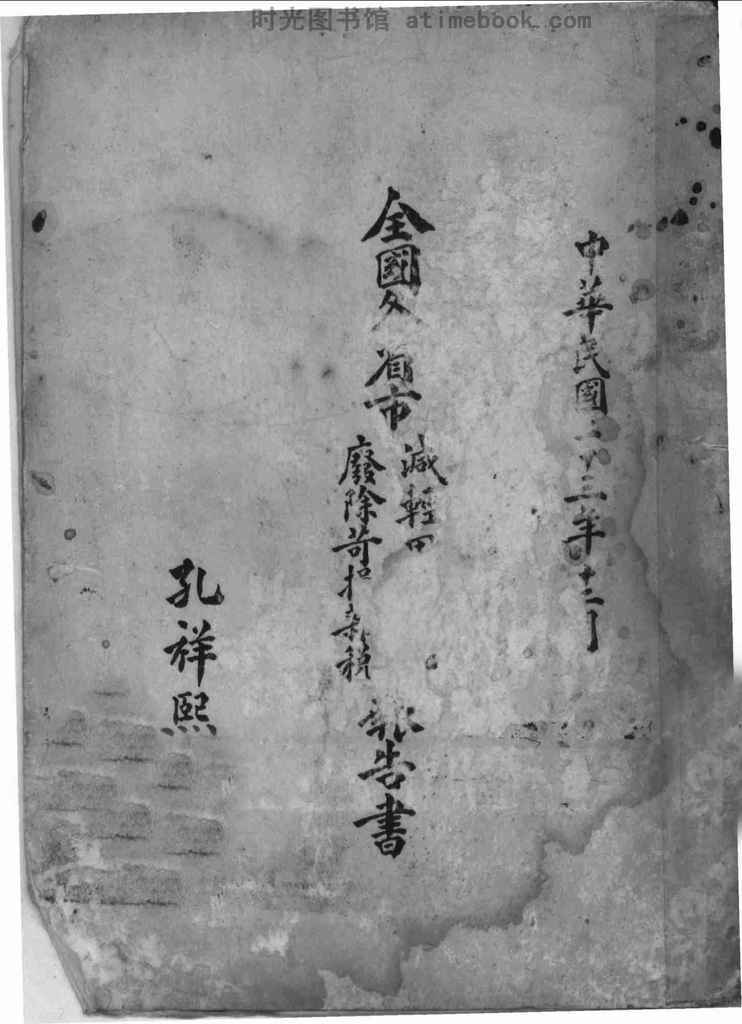 时光图书馆 atimebook.com
中華民國二十三年十二月
全國各省市
減輕田
廢除苛捐雜稅
報告書
孔祥熙